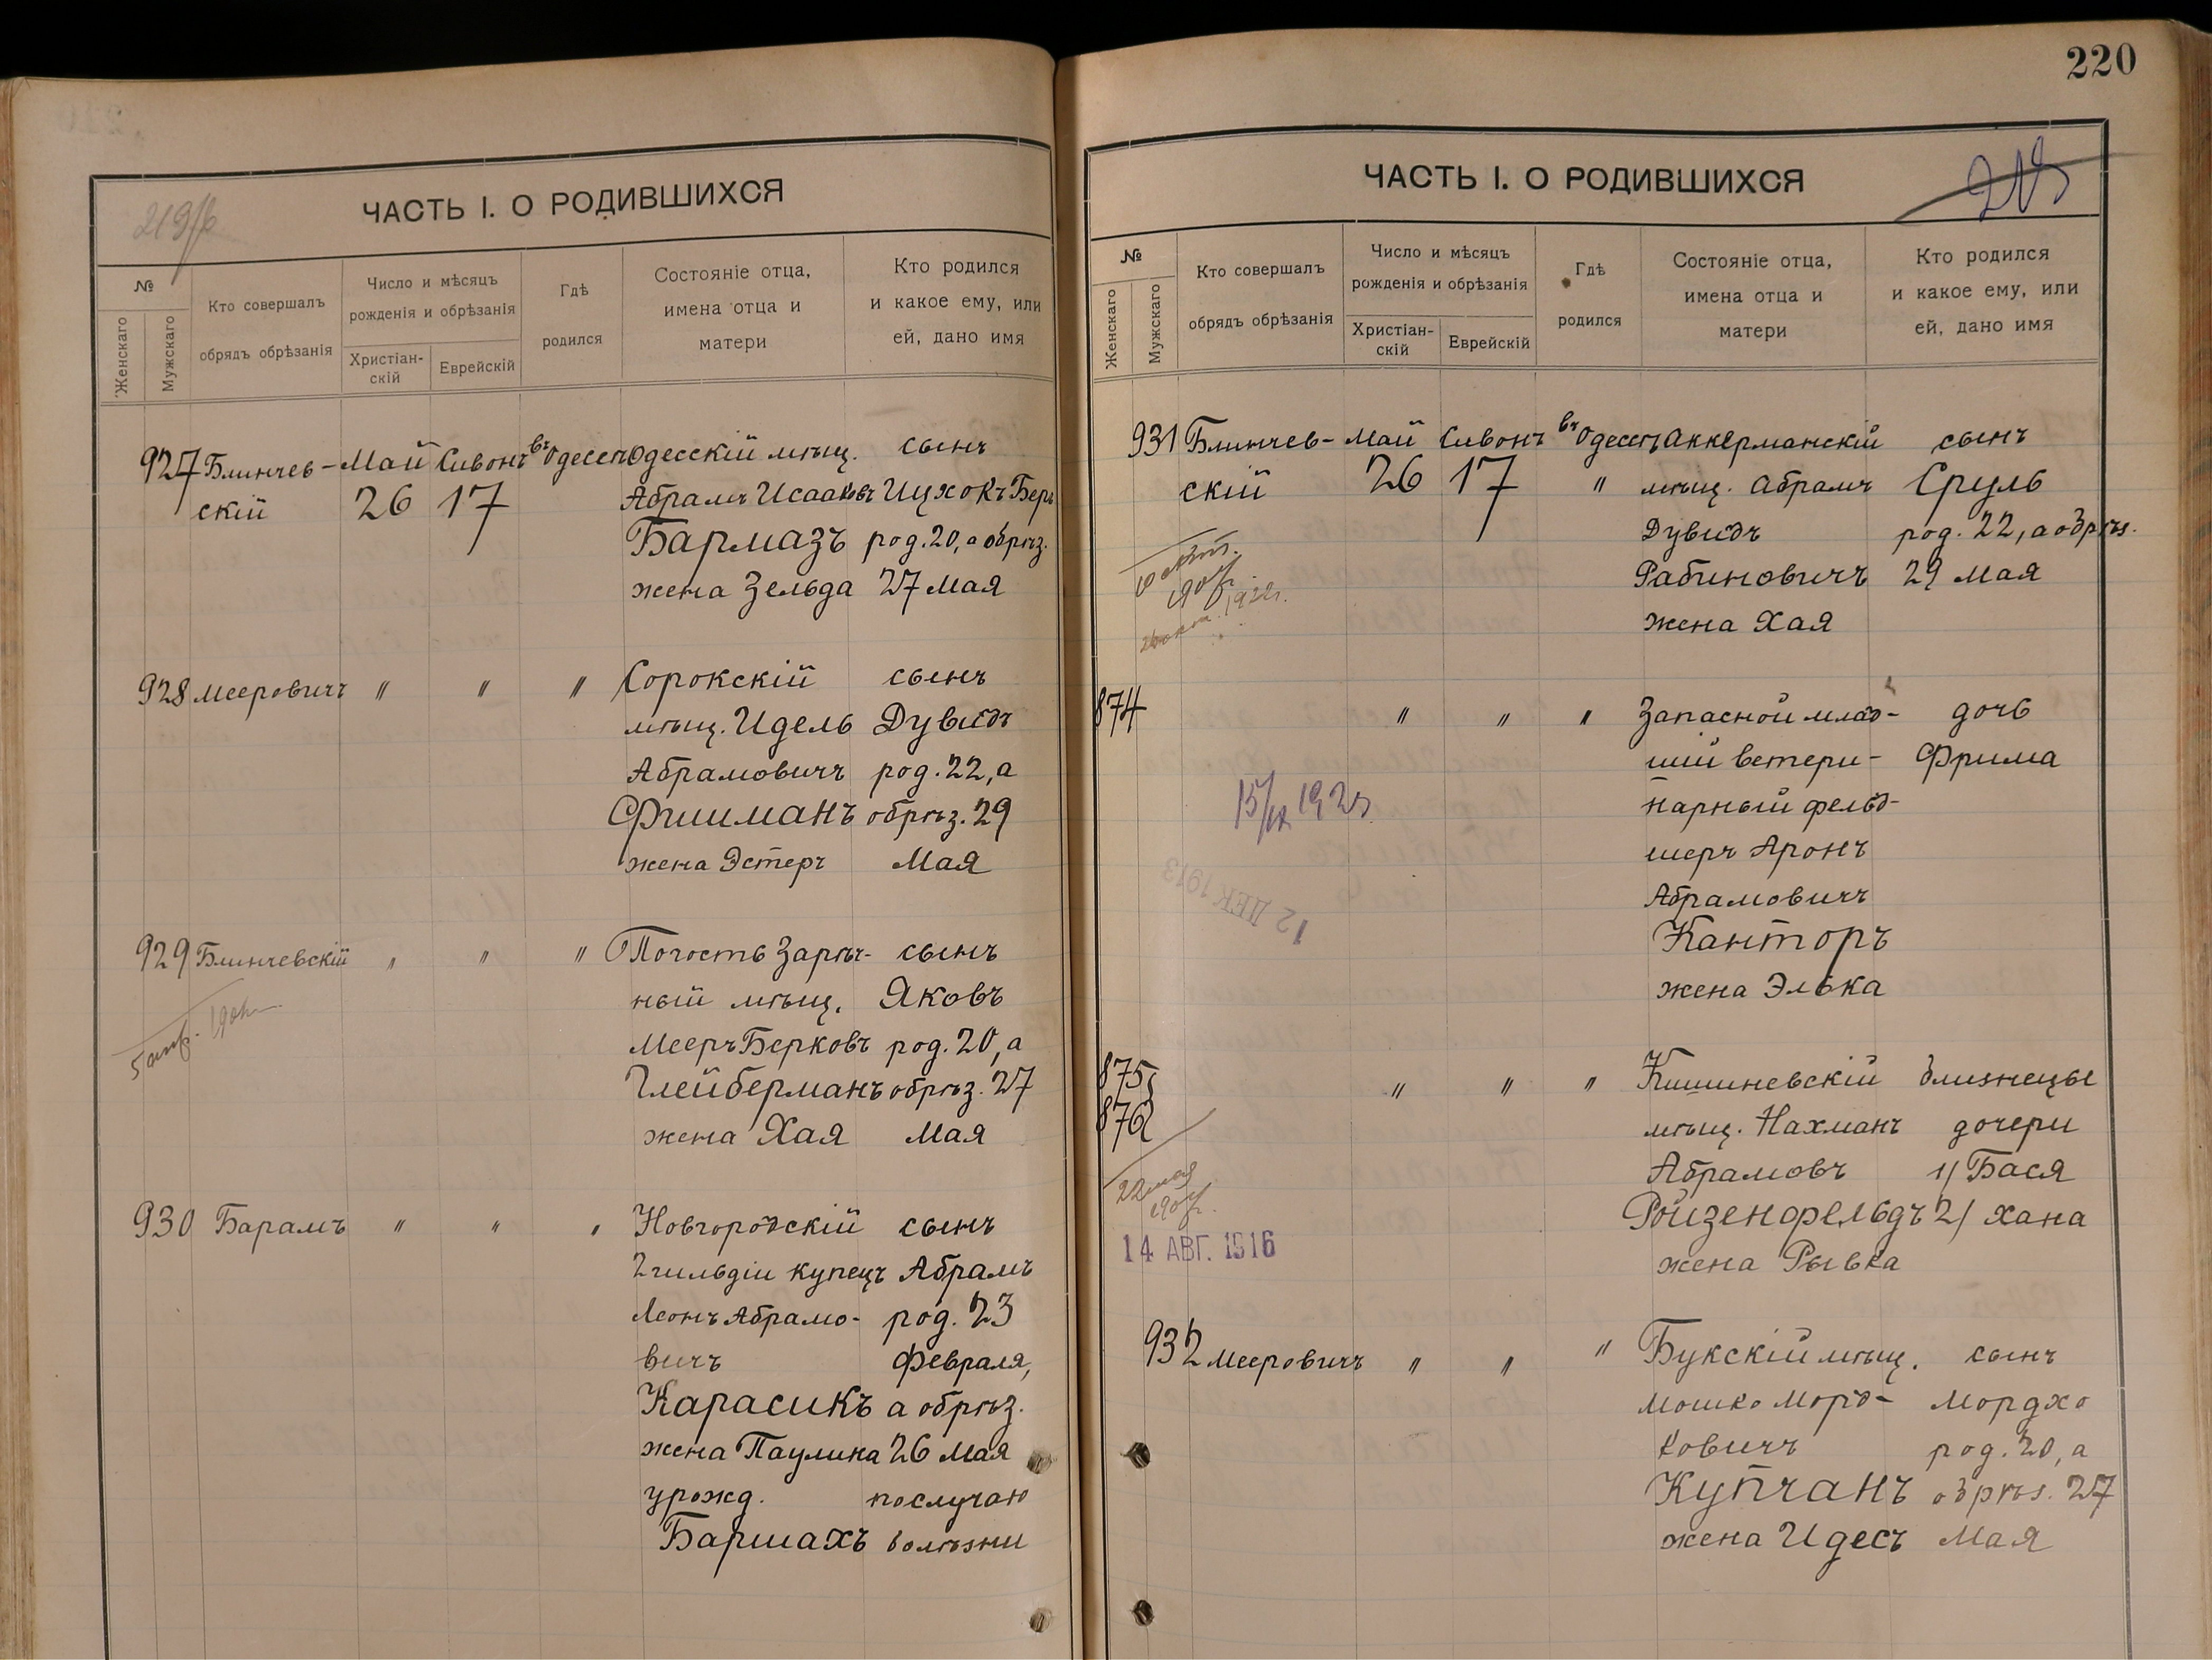 220
219/б
ЧАСТЬ I. О РОДИВШИХСЯ
№
Женскаго
Мужскаго
Кто совершалъ
обрядъ обрѣзанія
Число и мѣсяцъ
рожденія и обрѣзанія
Христіан-
скій
Еврейскій
Гдѣ
родился
Состояніе отца,
имена отца и
матери
Кто родился
и какое ему, или
ей, дано имя
927 Блинчев- Май Сивонъ въ Одессѣ Одесскій мѣщ. сынъ
скій 26 17 Абрамъ Исааковъ Ицхокъ Беръ
Бармазъ род. 20, а обрѣз.
жена Зельда 27 Мая
928 Мееровичъ " " " Сорокскій сынъ
мѣщ. Идель Дувидъ
Абрамовичъ род. 22, а
Фишманъ обрѣз. 29
жена Эстеръ Мая
929 Блинчевскій " " " Погость Зарѣч- сынъ
ный мѣщ. Яковъ
Мееръ Берковъ род. 20, а
Глейберманъ обрѣз. 27
жена Хая Мая
930 Барамъ " " " Новгородскій сынъ
2 гильдіи купецъ Абрамъ
Леонъ Абрамо- род. 23
вичъ Февраля,
Карасикъ а обрѣз.
жена Паулина 26 Мая
урожд. по случаю
Баршахъ болѣзни
ЧАСТЬ I. О РОДИВШИХСЯ
№
Женскаго
Мужскаго
Кто совершалъ
обрядъ обрѣзанія
Число и мѣсяцъ
рожденія и обрѣзанія
Христіан-
скій
Еврейскій
Гдѣ
родился
Состояніе отца,
имена отца и
матери
Кто родился
и какое ему, или
ей, дано имя
931 Блинчев- Май Сивонъ въ Одессѣ Аккерманскій сынъ
скій 26 17 " мѣщ. Абрамъ Сруль
Дувидъ род. 22, а обрѣз.
Рабиновичъ 29 Мая
жена Хая
874 " " " Запасной млад- дочь
шій ветери- Фрима
нарный фельд-
шеръ Аронъ
Абрамовичъ
12 ДЕК 1913
Канторъ
жена Элька
875 " " " Кишиневскій близнецы
876 мѣщ. Нахманъ дочери
Абрамовъ 1/ Бася
22 мая
Ройзенфельдъ 2/ Хана
14 АВГ. 1916
жена Рывка
932 Мееровичъ " " " Букскій мѣщ. сынъ
Мошко Морд- Мордхо
ковичъ род. 20, а
Купчанъ обрѣз. 27
жена Идесъ Мая